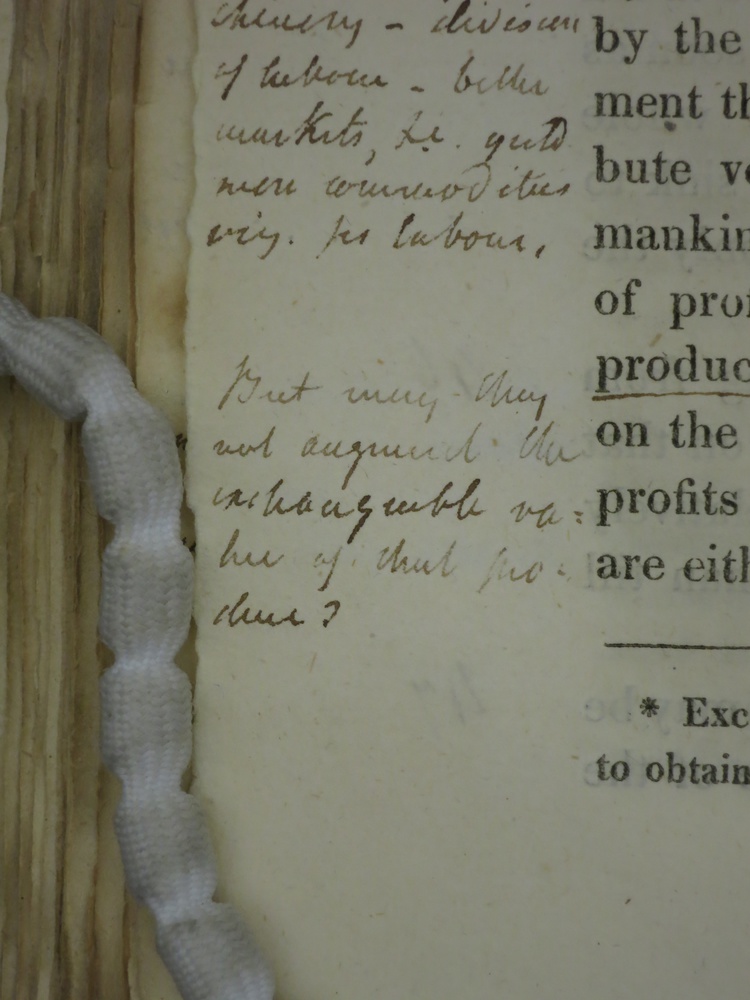 chinery - division
of labour - better
markets, &c. yield
more commodities
viz. p labour,
But may they
not augment the
exchangeable va=
lue of that pro=
duce?
by the
ment th
bute ve
mankin
of prof
produc
on the
profits
are eith
* Exc
to obtain